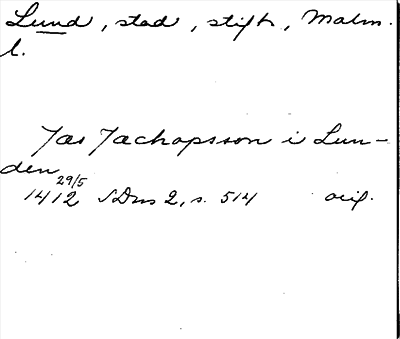 Lund, stad, stift, Malm.
l.
Jas Jachopsson i Lun-
den
29/5
1412 SDns 2, s. 514 orig.